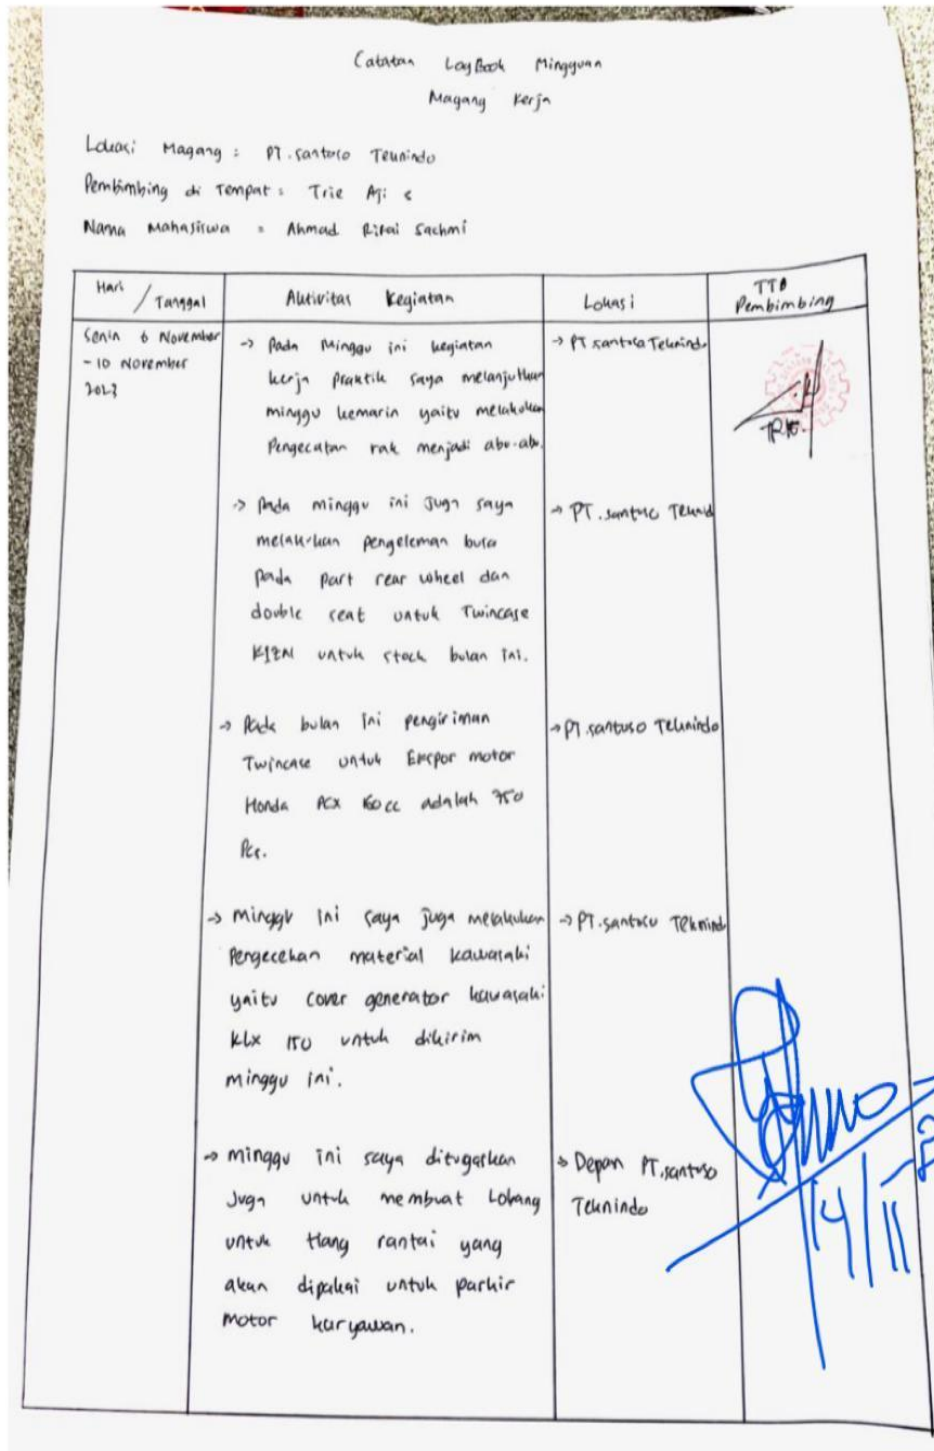 Catatan LogBook Mingguan
Magang Kerja
Lokasi Magang : PT. Santoso Teknindo
Pembimbing di Tempat : Trie Aji S
Nama Mahasiswa : Ahmad Rifai Sachmi
Hari / Tanggal
Aktivitas Kegiatan
Lokasi
TTD Pembimbing
Senin 6 November
- 10 November
2023
-> Pada Minggu ini kegiatan
kerja praktik saya melanjutkan
minggu kemarin yaitu melakukan
Pengecatan rak menjadi abu-abu.
-> PT Santoso Teknindo
-> Pada minggu ini Juga saya
melakukan pengeleman busa
pada part rear wheel dan
double seat untuk Twincase
untuk stock bulan ini.
-> PT. Santoso Teknind
-> Pada bulan ini pengiriman
Twincase untuk Ekspor motor
Honda PCX 160 cc adalah 750
Pcs.
-> PT. Santoso Teknindo
-> minggu ini saya juga melakukan
Pengecekan material kawasaki
yaitu cover generator kawasaki
KLX 150 untuk dikirim
minggu ini.
-> PT. Santoso Teknindo
-> minggu ini saya ditugaskan
Juga untuk membuat Lobang
untuk tiang rantai yang
akan dipakai untuk parkir
motor karyawan.
-> Depan PT. Santoso
Teknindo
14/11